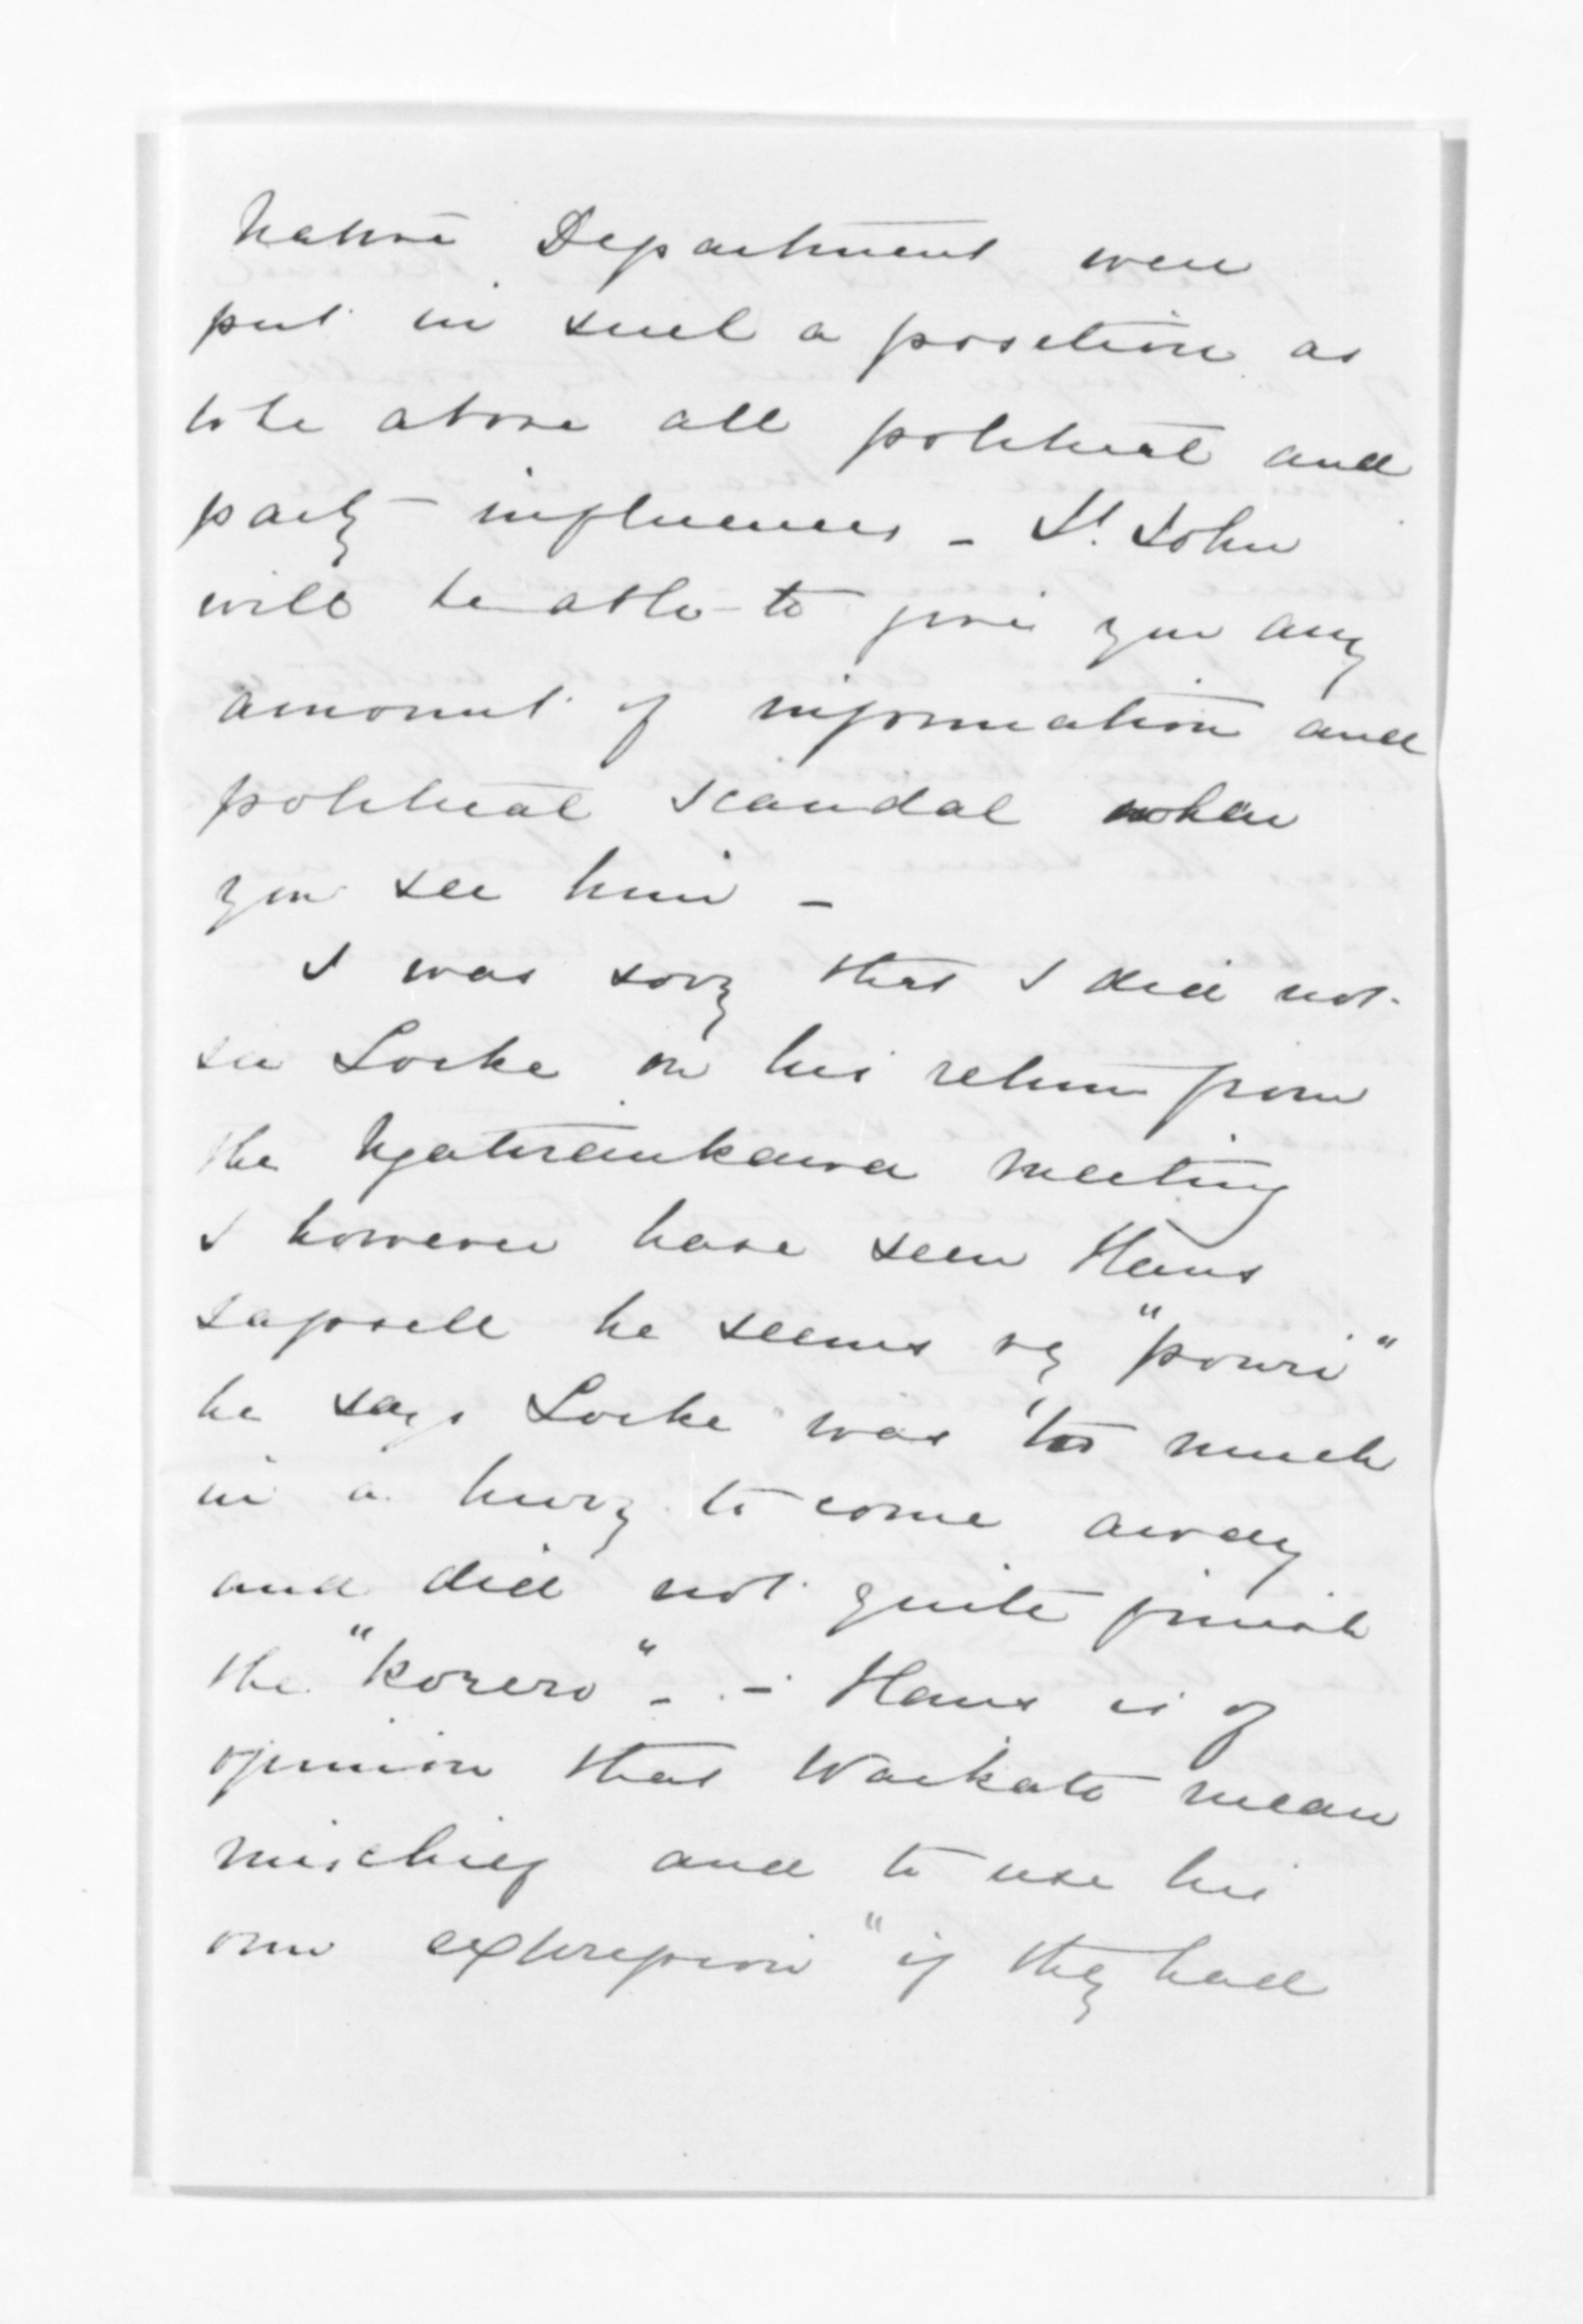 Native Department were
put in such a position as
to be above all political and
party influences _ St. John
will be able to give you any
amount of information and
political scandal when
you see him _
I was sorry that I did not
see Locke on his return from
the Ngatiraukawa meeting
I however have seen Hans
Tapsell he seems vy "pouri"
he says Locke was too much
in a hurry to come away
and did not quite finish
the "korero" - - Hans is of
opinion that Waikato mean
mischief and to use his
own expression "if they had